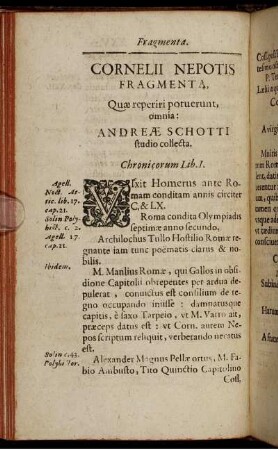 Fragmenta.
CORNELII NEPOTIS
FRAGMENTA,
Quæ reperiri potuerunt,
omnia:
ANDREÆ SCHOTTI
studio collecta.
Chronicorum Lib. I.
Agell.
Noct. At-
tic. lib. 17.
cap. 21.
Solin Poly-
hist. c. 2.
Agell. 17.
cap. 21.
Ibidem.
Solin c. 43.
Polyhistor.
VIxit Homerus ante Ro-
mam conditam annis circiter
C. & LX.
Roma condita Olympiadis
septimæ anno secundo.
Archilochus Tullo Hostilio Romæ re-
gnante iam tunc poëmatis clarus & no-
bilis.
M. Manlius Romæ, qui Gallos in obsi-
dione Capitolii obrepentes per ardua de-
pulerat, convictus est consilium de re-
gno occupando inisse: damnatusque
capitis, è saxo Tarpeio, vt M. Varro ait,
præceps datus est: vt Corn. autem Ne-
pos scriptum reliquit, verberando necatus
est.
Alexander Magnus Pellæ ortus, M. Fa-
bio Ambusto, Tito Quinctio Capitolino
Cos.